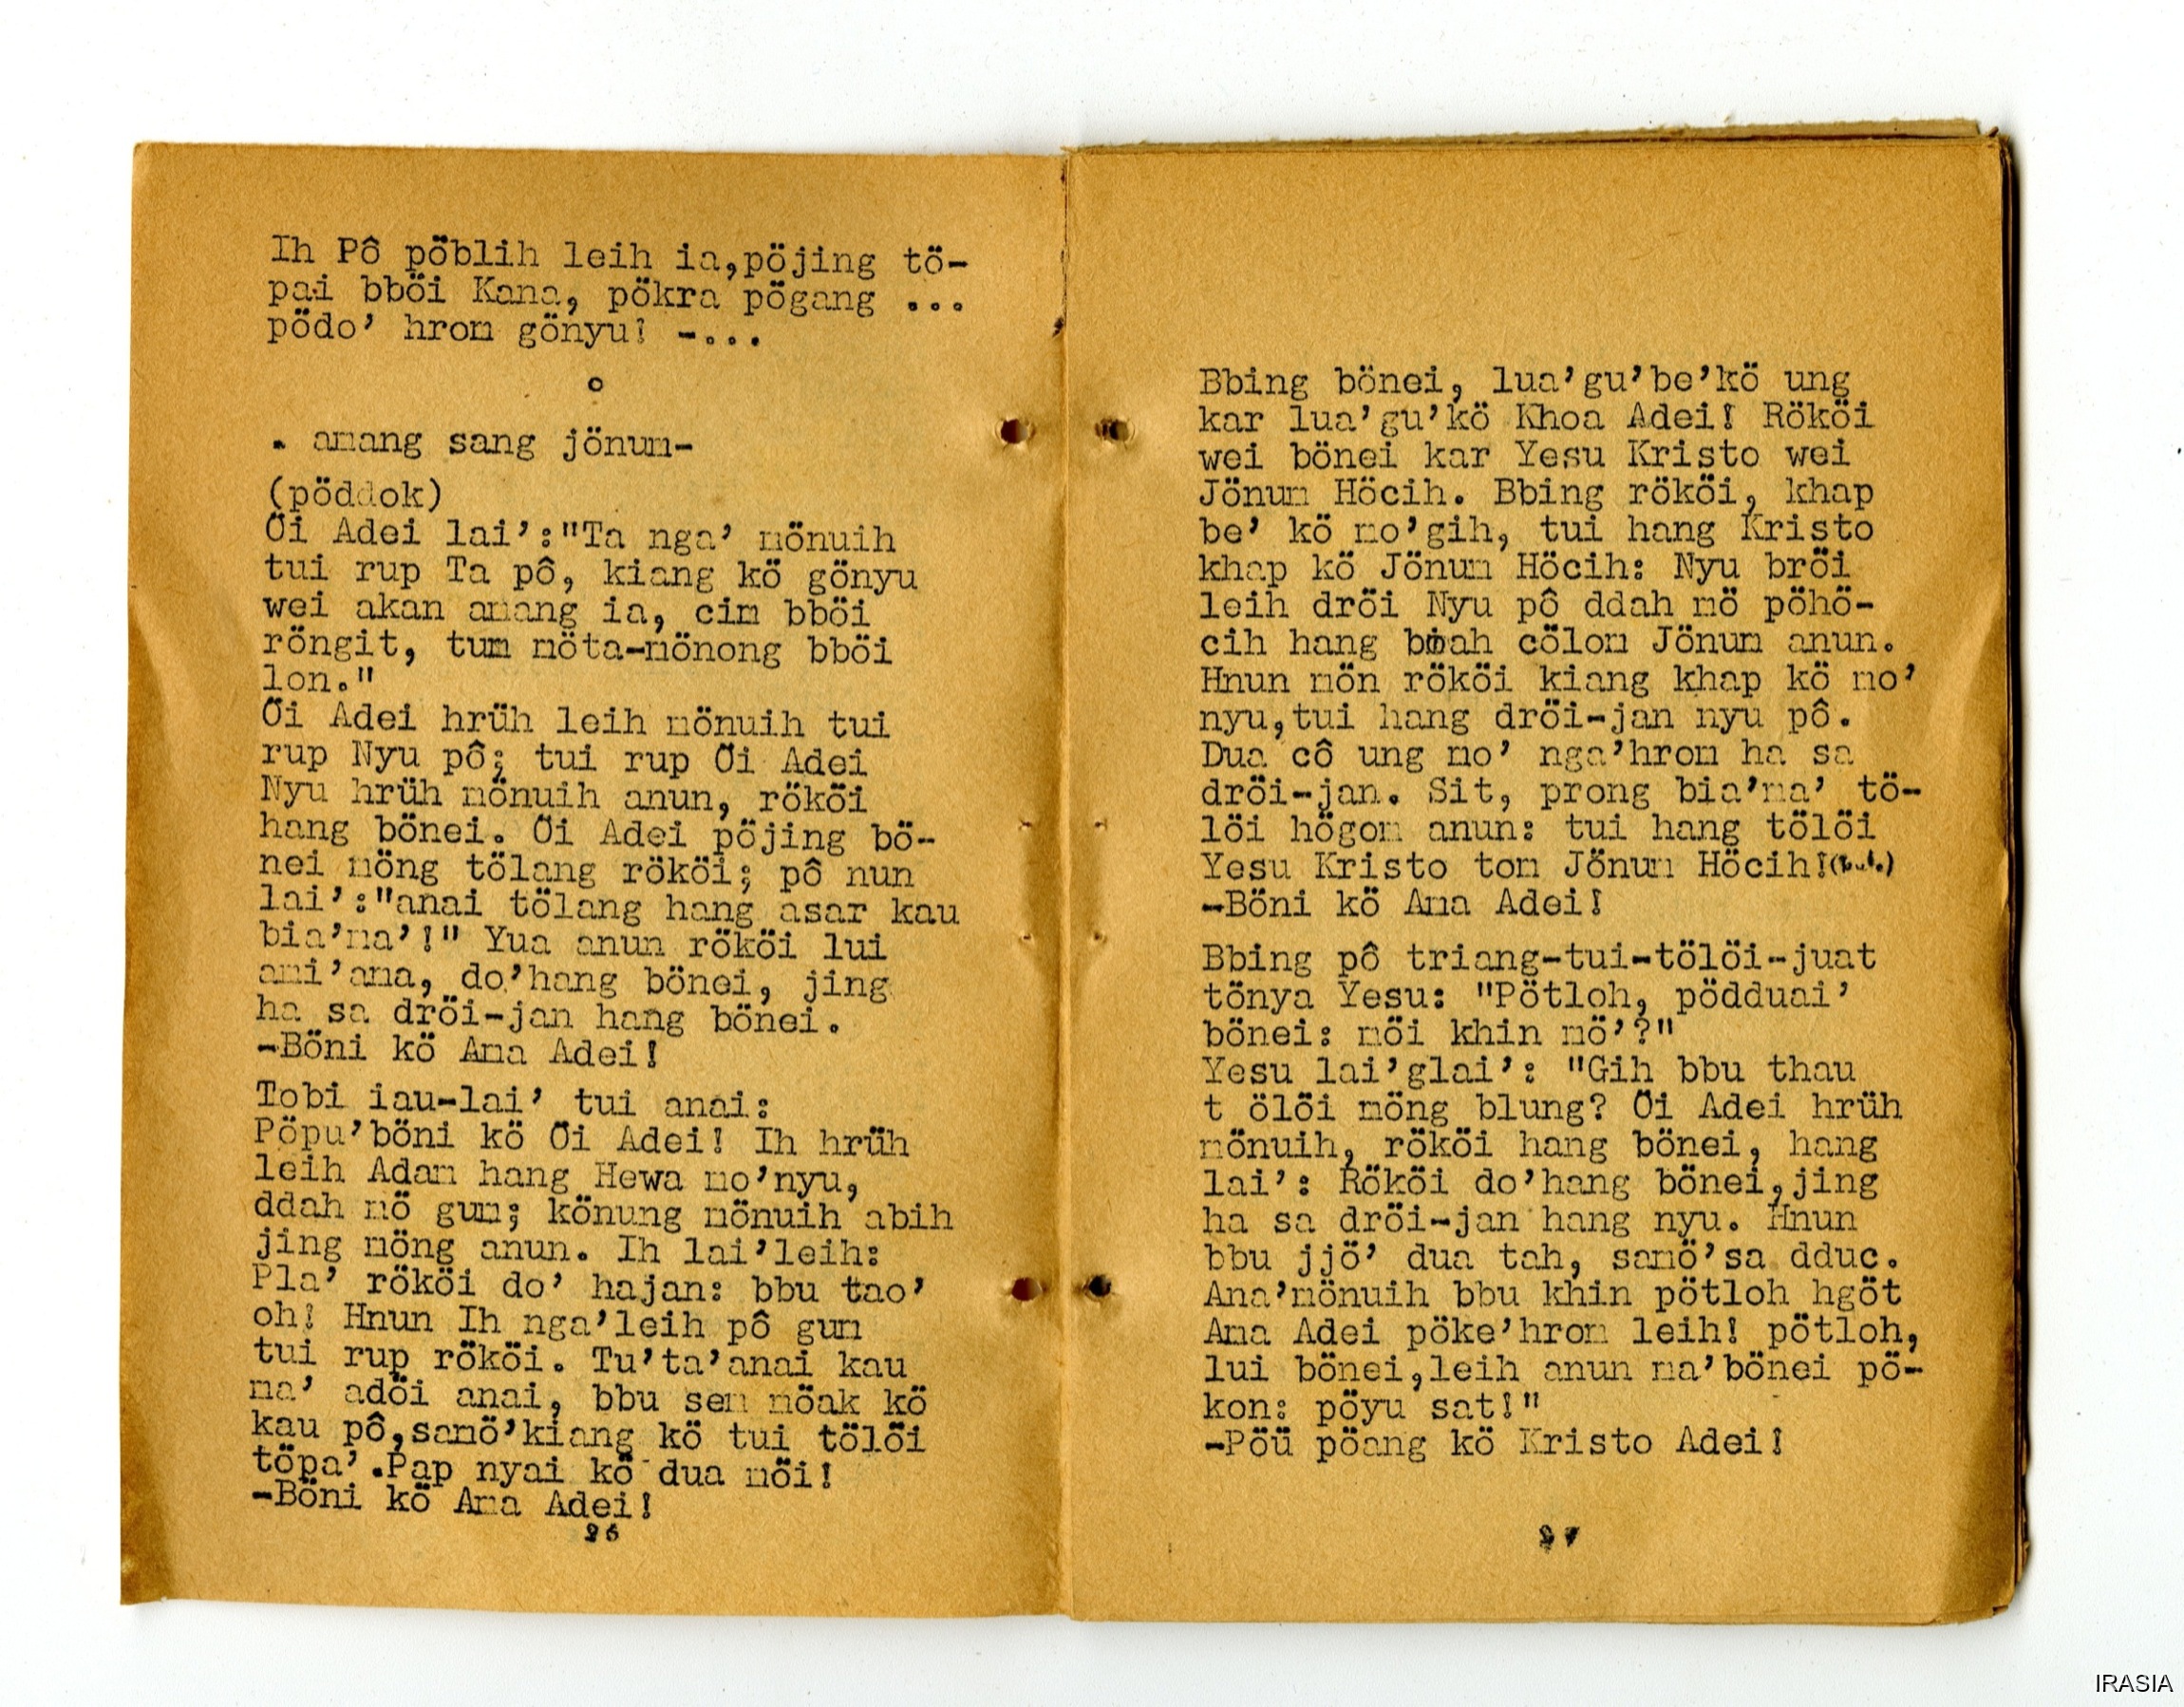 Ih Pô pöblih leih ia,pöjing tö-
pai bböi Kana, pökra pögang ...
pödo' hrom gönyu! -...
o
. amang sang jönum-
(pöddok)
Öi Adei lai':"Ta nga' mönuih
tui rup Ta pô, kiang kö gönyu
wei akan amang ia, cim bböi
röngit, tum möta-mönong bböi
lon."
Öi Adei hrüh leih mönuih tui
rup Nyu pô; tui rup Öi Adei
Nyu hrüh mönuih anun, rököi
hang bönei. Öi Adei pöjing bö-
nei möng tölang rököi; pô nun
lai':"anai tölang hang asar kau
bia'ma'!" Yua anun rököi lui
ami'ama, do'hang bönei, jing
ha sa dröi-jan hang bönei.
-Böni kö Ama Adei!
Tobi iau-lai' tui anai:
Pöpu'böni kö Öi Adei! Ih hrüh
leih Adam hang Hewa mo'nyu,
ddah mö gum; könung mönuih abih
jing möng anun. Ih lai'leih:
Pla' rököi do' hajan: bbu tao'
oh! Hnun Ih nga'leih pô gum
tui rup rököi. Tu'ta'anai kau
ma' adöi anai, bbu sem möak kö
kau pô,samö'kiang kö tui tölöi
töpa'.Pap nyai kö dua möi!
-Böni kö Ama Adei!
26
Bbing bönei, lua'gu'be'kö ung
kar lua'gu'kö Khoa Adei! Rököi
wei bönei kar Yesu Kristo wei
Jönum Höcih. Bbing rököi, khap
be' kö mo'gih, tui hang Kristo
khap kö Jönum Höcih: Nyu bröi
leih dröi Nyu pô ddah mö pöhö-
cih hang bmah cölom Jönum anun.
Hnun mön rököi kiang khap kö mo'
nyu,tui hang dröi-jan nyu pô.
Dua cô ung mo' nga'hrom ha sa
dröi-jan. Sit, prong bia'ma' tö-
löi högom anun: tui hang tölöi
Yesu Kristo tom Jönum Höcih!
-Böni kö Ama Adei!
Bbing pô triang-tui-tölöi-juat
tönya Yesu: "Pötloh, pödduai'
bönei: möi khin mö'?"
Yesu lai'glai': "Gih bbu thau
t ölöi möng blung? Öi Adei hrüh
mönuih, rököi hang bönei, hang
lai': Rököi do'hang bönei,jing
ha sa dröi-jan hang nyu. Hnun
bbu jjö' dua tah, samö'sa dduc.
Ana'mönuih bbu khin pötloh hgöt
Ama Adei pöke'hrom leih! pötloh,
lui bönei,leih anun ma'bönei pö-
kon: pöyu sat!"
-Pöü pöang kö Kristo Adei!
27
IRASIA